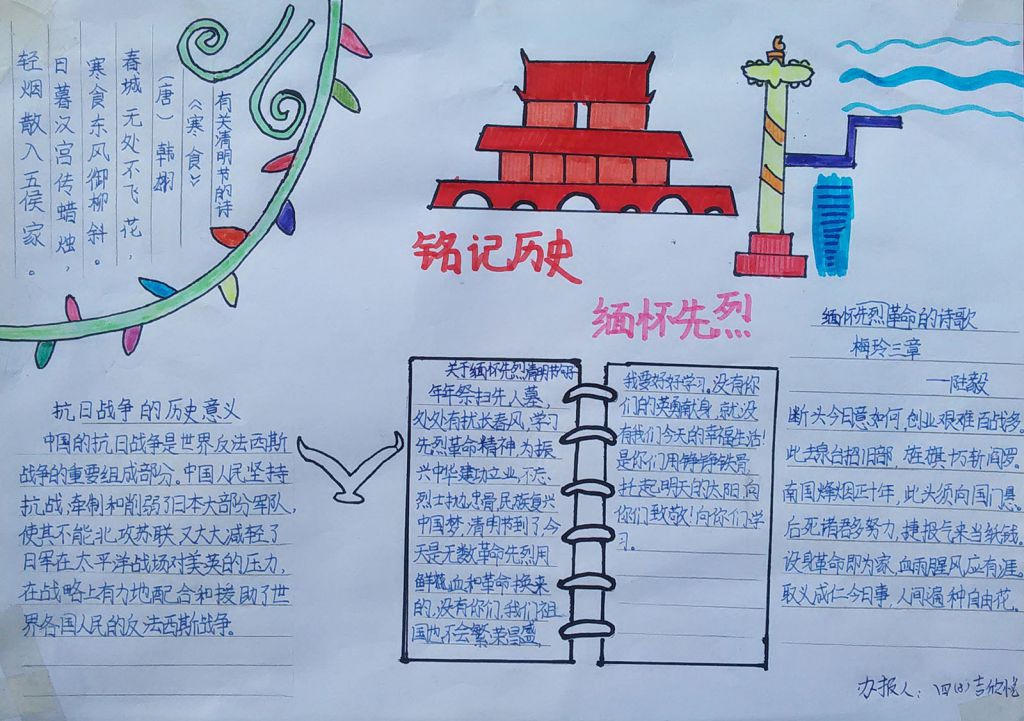 有关清明节的诗
《寒食》
（唐）韩翃
春城无处不飞花，
寒食东风御柳斜。
日暮汉宫传蜡烛，
轻烟散入五侯家。
铭记历史
缅怀先烈
抗日战争的历史意义
中国的抗日战争是世界反法西斯
战争的重要组成部分。中国人民坚持
抗战，牵制和削弱了日本大部分军队，
使其不能北攻苏联，又大大减轻了
日军在太平洋战场对美英的压力，
在战略上有力地配合和援助了世
界各国人民的反法西斯战争。
关于缅怀先烈清明节的
年年祭扫先人墓，
处处有扰长春风，学习
先烈革命精神，为振
兴中华建功立业，不忘
烈士忠骨，民族复兴
中国梦，清明节到了，今
天是无数革命先烈用
鲜血和革命换来
的，没有你们，我们祖
国也不会繁荣昌盛，
我要好好学习。没有你
们的英勇献身，就没
有我们今天的幸福生活！
是你们用铮铮铁骨
托起明天的太阳，向
你们致敬！向你们学
习。
缅怀先烈革命的诗歌
梅玲三章
—陆毅
断头今日意如何，创业艰难百战多。
此去泉台招旧部，旌旗十万斩阎罗。
南国烽烟正十年，此头须向国门悬。
后死诸君多努力，捷报飞来当纸钱。
设身革命即为家，血雨腥风应有涯。
取义成仁今日事，人间遍种自由花。
办报人：四(8)吉欣